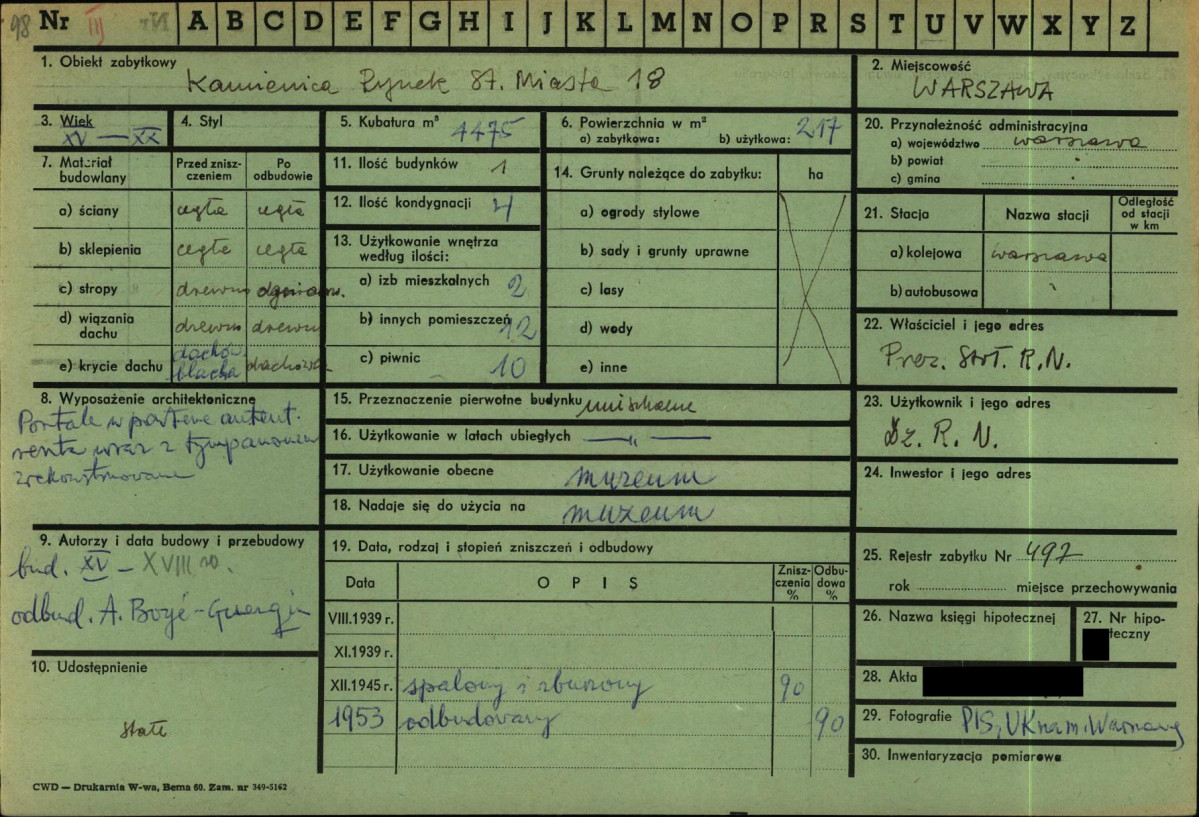 98 Nr III A B C D E F G H I J K L M N O P R S T U V W X Y Z
1. Obiekt zabytkowy
Kamienica Rynek St. Miasta 18
2. Miejscowość
WARSZAWA
3. Wiek
XV — XX
4. Styl
5. Kubatura m³ 4475
6. Powierzchnia w m²
a) zabytkowa: b) użytkowa: 217
7. Materiał budowlany
Przed zniszczeniem
Po odbudowie
a) ściany cegła cegła
b) sklepienia cegła cegła
c) stropy drewno
d) wiązania dachu drewno drewno
e) krycie dachu dachów. blacha dachówka
8. Wyposażenie architektoniczne
Portale w parterze autent.
reszta wraz z tympanonem
zrekonstruowana
9. Autorzy i data budowy i przebudowy
bud. XV – XVIII w.
odbud. A. Boyé-Guerquin
10. Udostępnienie
stałe
11. Ilość budynków 1
12. Ilość kondygnacji 4
13. Użytkowanie wnętrza według ilości:
a) izb mieszkalnych 2
b) innych pomieszczeń 12
c) piwnic 10
14. Grunty należące do zabytku: ha
a) ogrody stylowe
b) sady i grunty uprawne
c) lasy
d) wody
e) inne
15. Przeznaczenie pierwotne budynku mieszkalne
16. Użytkowanie w latach ubiegłych —„—
17. Użytkowanie obecne muzeum
18. Nadaje się do użycia na muzeum
19. Data, rodzaj i stopień zniszczeń i odbudowy
Data OPIS Zniszczenia % Odbudowa %
VIII.1939 r.
XI.1939 r.
XII.1945 r. spalony i zburzony 90
1953 odbudowany 90
20. Przynależność administracyjna
a) województwo warszawa
b) powiat
c) gmina
21. Stacja Nazwa stacji Odległość od stacji w km
a) kolejowa warszawa
b) autobusowa
22. Właściciel i jego adres
Prez. Stoł. R.N.
23. Użytkownik i jego adres
Dz. R. N.
24. Inwestor i jego adres
25. Rejestr zabytku Nr 497
rok miejsce przechowywania
26. Nazwa księgi hipotecznej
27. Nr hipoteczny
28. Akta
29. Fotografie PIS, UKnam. Warszawy
30. Inwentaryzacja pomiarowa
CWD — Drukarnia W-wa, Bema 60. Zam. nr 349-5162